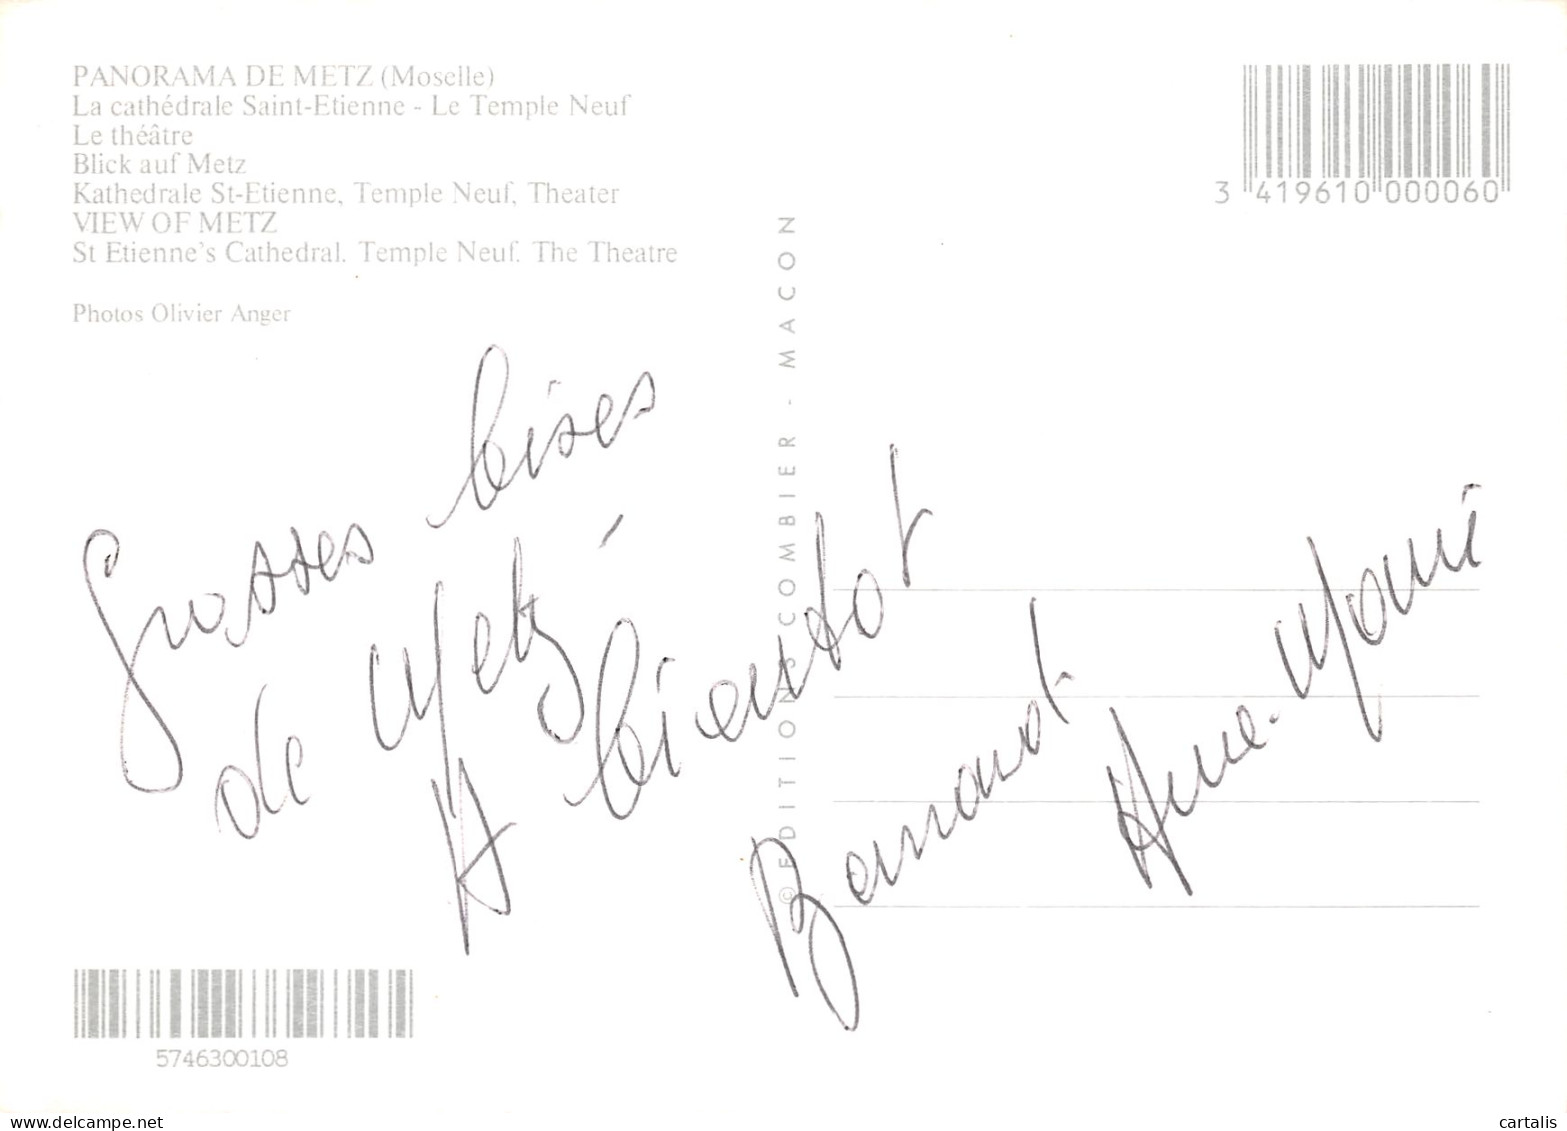 PANORAMA DE METZ (Moselle)
La cathédrale Saint-Etienne - Le Temple Neuf
Le théâtre
Blick auf Metz
Kathedrale St-Etienne, Temple Neuf, Theater
VIEW OF METZ
St Etienne's Cathedral. Temple Neuf. The Theatre
Photos Olivier Anger
3 419610 000060
© EDITIONS COMBIER - MACON
Grosses bises
de Metz
A bientot
Bernard.
Anne-Marie
5746300108
www.delcampe.net
cartalis